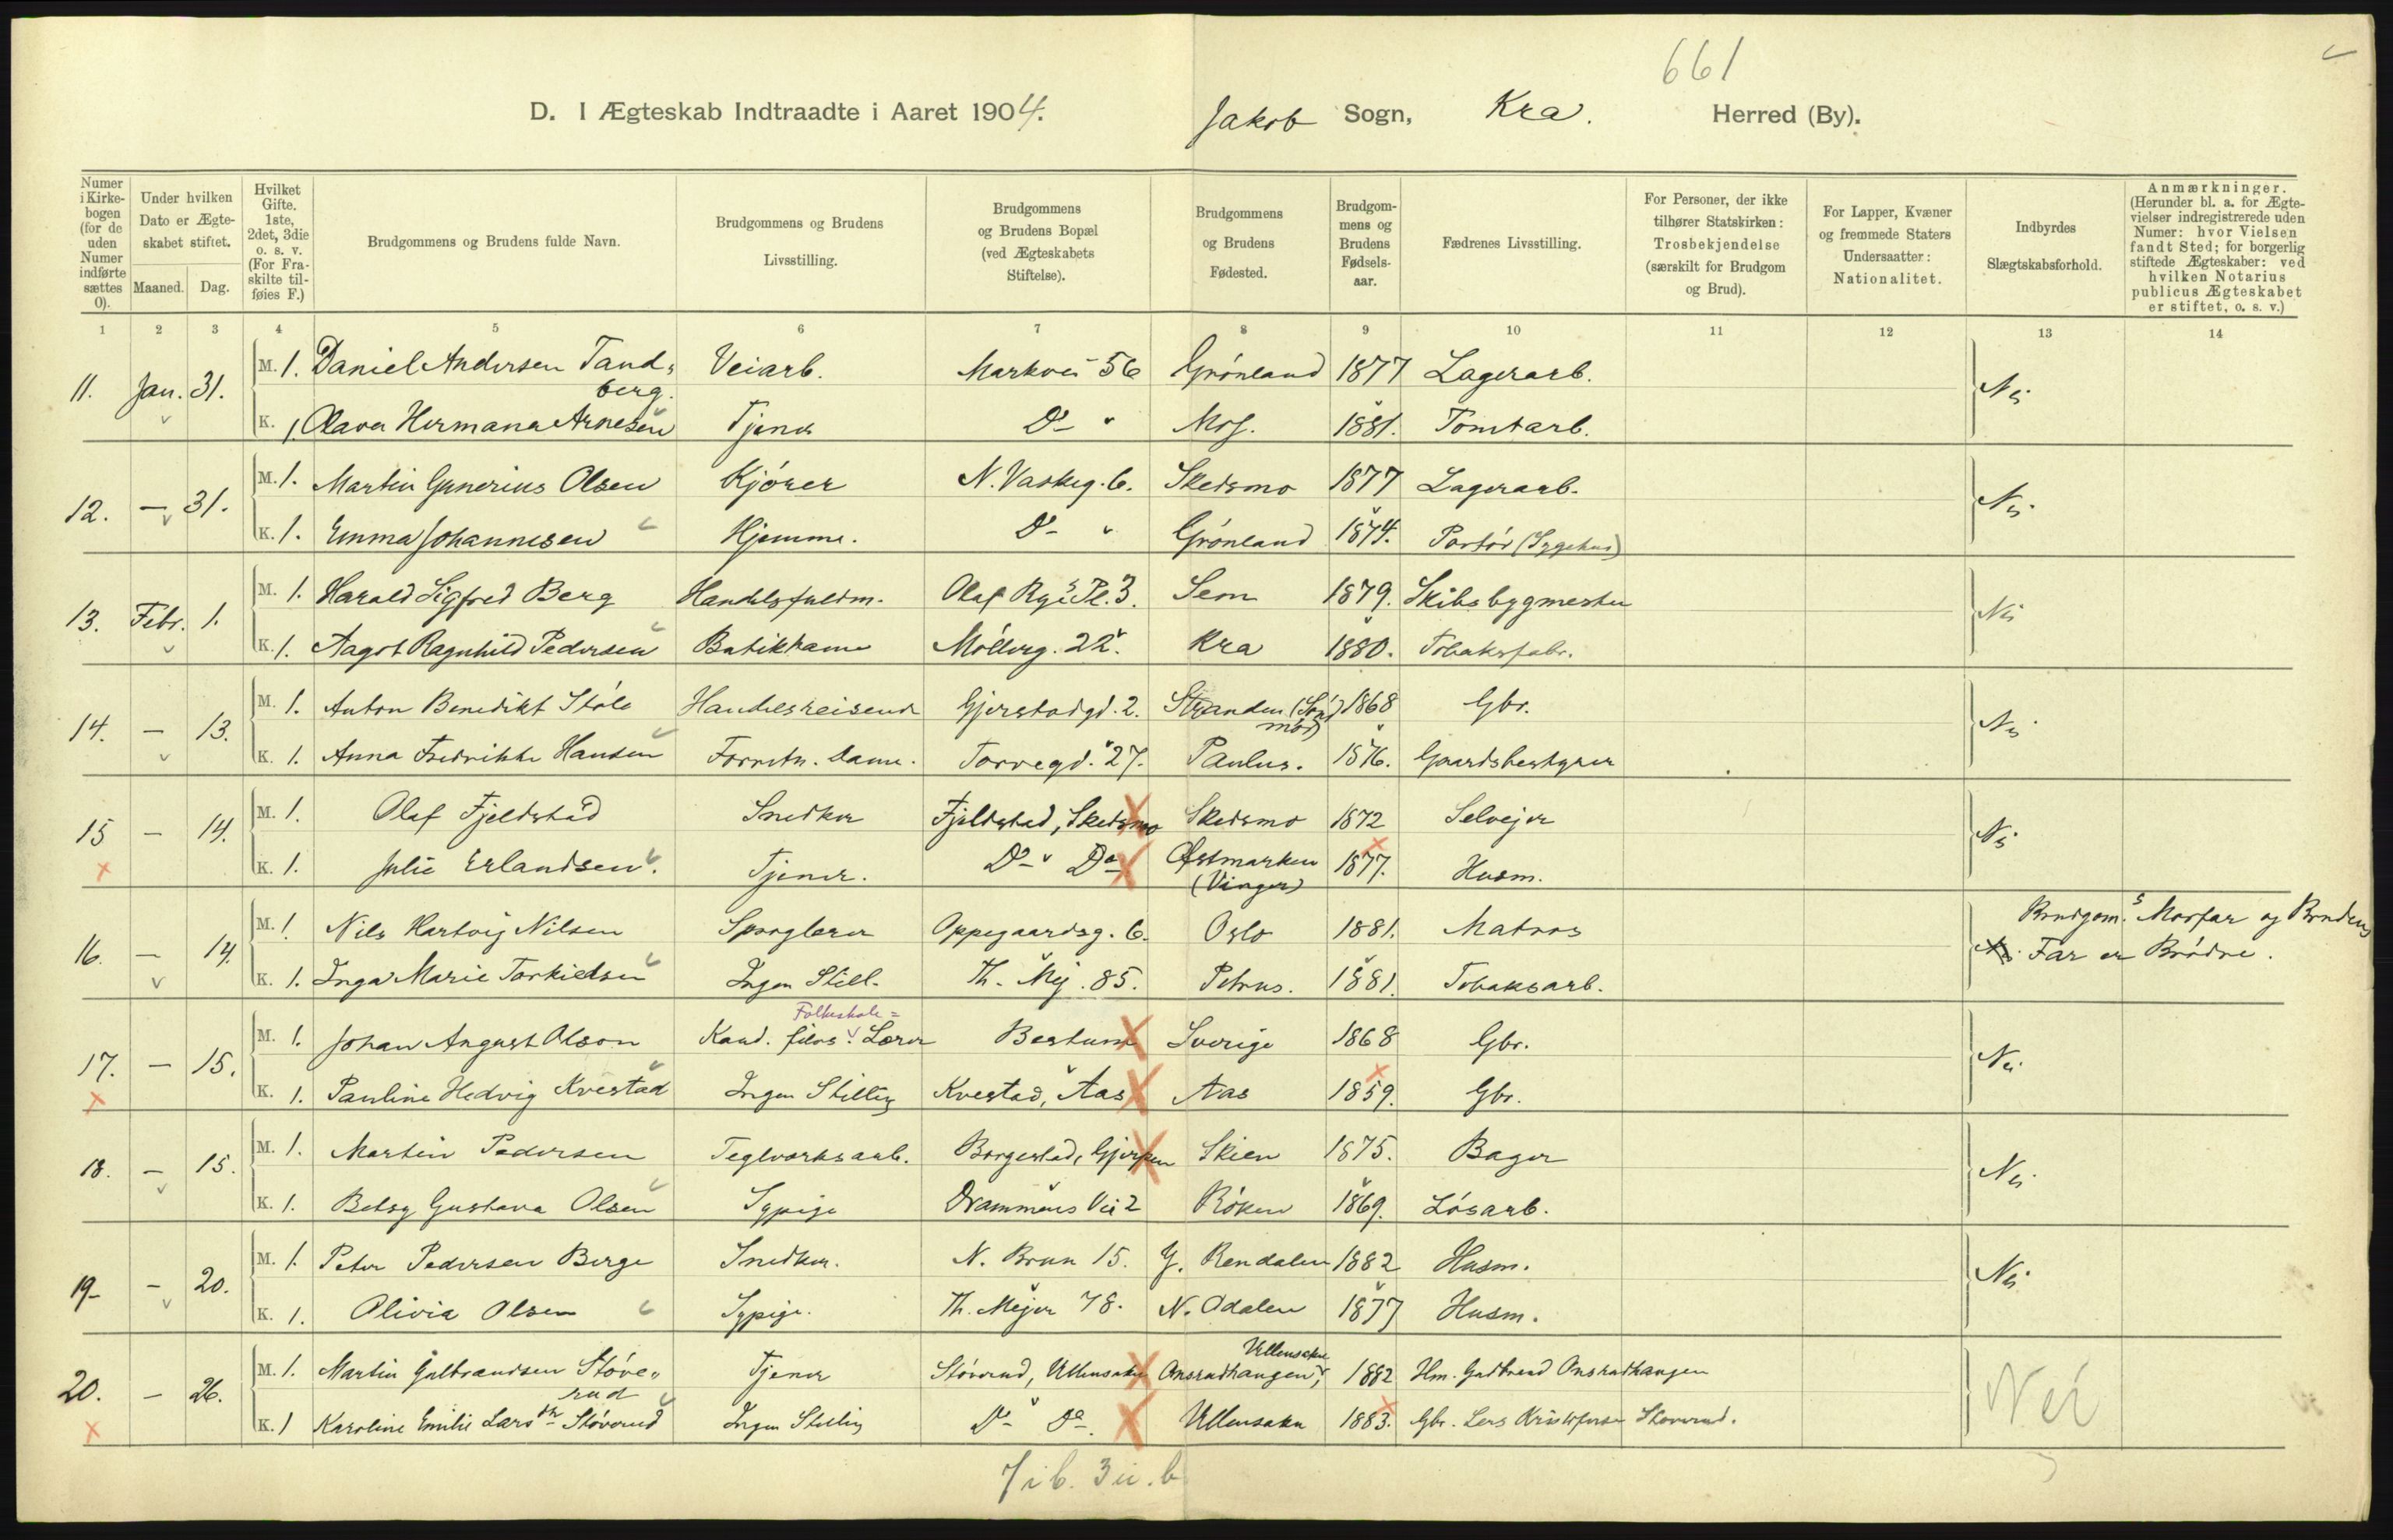 661
D. I Ægteskab Indtraadte i Aaret 1904. Jakob Sogn, Kra. Herred (By).
Numer i Kirkebogen (for de uden Numer indførte sættes 0).
Under hvilken Dato er Ægteskabet stiftet.
Maaned. Dag.
Hvilket Gifte. 1ste, 2det, 3die o. s. v. (For Fraskilte tilføies F.)
Brudgommens og Brudens fulde Navn.
Brudgommens og Brudens Livsstilling.
Brudgommens og Brudens Bopæl (ved Ægteskabets Stiftelse).
Brudgommens og Brudens Fødested.
Brudgommens og Brudens Fødselsaar.
Fædrenes Livsstilling.
For Personer, der ikke tilhører Statskirken: Trosbekjendelse (særskilt for Brudgom og Brud).
For Lapper, Kvæner og fremmede Staters Undersaatter: Nationalitet.
Indbyrdes Slægtskabsforhold.
Anmærkninger. (Herunder bl. a. for Ægtevielser indregistrerede uden Numer: hvor Vielsen fandt Sted; for borgerlig stiftede Ægteskaber: ved hvilken Notarius publicus Ægteskabet er stiftet, o. s. v.)
1 2 3 4 5 6 7 8 9 10 11 12 13 14
11. Jan. 31. M. 1. Daniel Andersen Tandberg. Veiarb. Markvei 56 Grønland 1877 Lagerarb. Nei
K. 1. Olava Hermana Arnesen Tjener Do " Moss. 1881. Tomtarb.
12. — 31. M. 1. Martin Gunerius Olsen Kjører N. Vaskeg. 6. Skedsmo 1877 Lagerarb. Nei
K. 1. Emma Johannesen Hjemme. Do " Grønland 1874. Portør (Sygehus)
13. Febr. 1. M. 1. Harald Sigfred Berg Handelsfuldm. Olaf Rye's Pl. 3. Sem 1879. Skibsbygmester Nei
K. 1. Aagot Ragnhild Pedersen Butikdame Møllerg. 22. Kra 1880. Tobaksfabr.
14. — 13. M. 1. Anton Benedikt Støle Handelsreisende Gjerstadgd. 2. Stranden (Søndmør) 1868 Gbr. Nei
K. 1. Anna Fredrikke Hansen Forretn. Dame. Torvegd. 27. Paulus. 1876. Gaardsbestyrer
15 — 14. M. 1. Olaf Fjeldstad Snedker Fjeldstad, Skedsmo Skedsmo 1872 Selvejer Nei
K. 1. Julie Erlandsen. Tjener. Do Do Østmarken (Vinger) 1877. Husm.
16. — 14. M. 1. Nils Hartvig Nilsen Sproglærer Oppegaardsg. 6. Oslo 1881. Matros Brudgom.s Morfar og Brudens Far er Brødre.
K. 1. Inga Marie Torkildsen Ingen Still. Th. Mej. 85. Petrus. 1881. Tobaksarb.
17. — 15. M. 1. Johan August Olson Kand. filos. Folkeskole= Lærer Bestum Sverige 1868 Gbr. Nei
K. 1. Pauline Hedvig Kvestad Ingen Stilling Kvestad, Aas Aas 1859. Gbr.
18. — 15. M. 1. Martin Pedersen Teglværksarb. Borgestad, Gjerpen Skien 1875. Bager Nei
K. 1. Betsy Gustava Olsen Sypige Drammens Vei 2 Røken 1869. Løsarb.
19 — 20. M. 1. Peter Pedersen Berge Snedker. N. Brun 15. Y. Rendalen 1882 Husm. Nei
K. 1. Olivia Olsen Sypige. Th. Mejer 78. N. Odalen 1877 Husm.
20. — 26. M. 1. Martin Gulbrandsen Støverud Tjener Støverud, Ullensaker Onsrudhangen, Ullensaker 1882 Hm. Gudbrand Onsrudhangen Nei
K. 1 Karoline Emilie Larsdtr Støverud Ingen Stilling Do Do. Ullensaker 1883. Gbr. Lars Kristofersen Støverud.
7 i b. 3 u. b